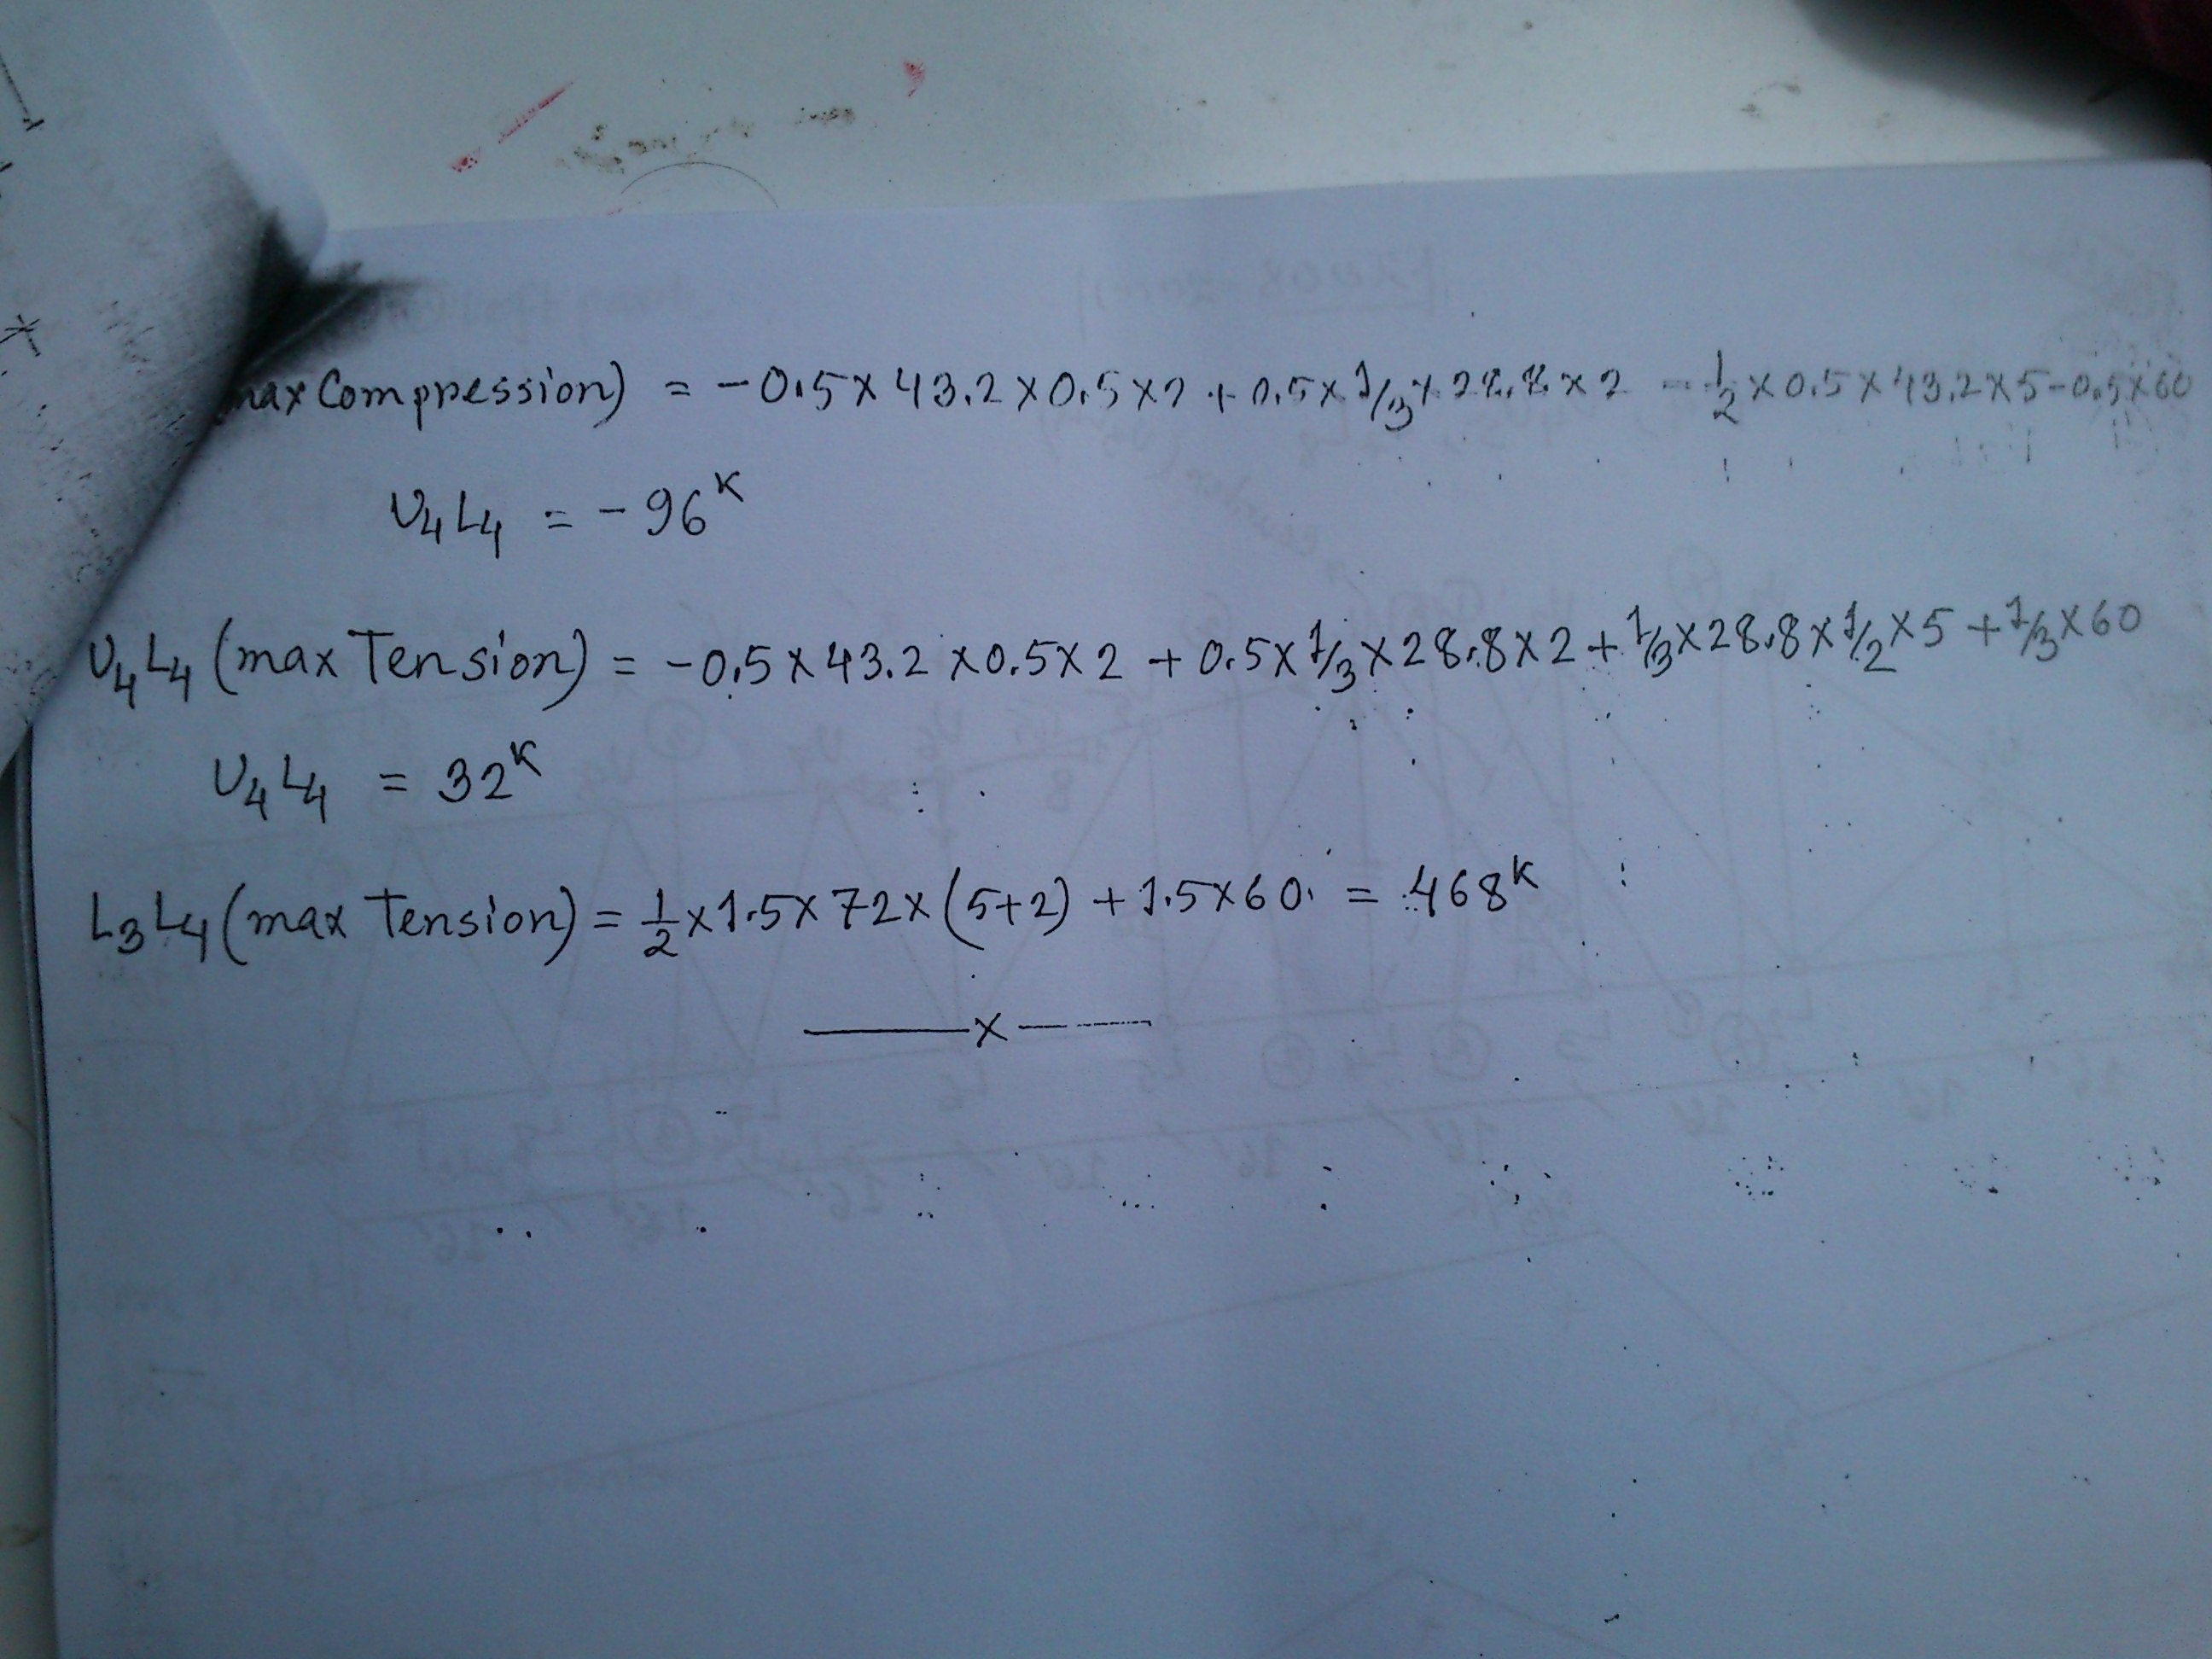 max Compression) = -0.5×43.2×0.5×2 + 0.5×1/3×28.8×2 - 1/2×0.5×43.2×5-0.5×60
U4L4 = -96^K
U4L4 (max Tension) = -0.5×43.2×0.5×2 + 0.5×1/3×28.8×2 + 1/3×28.8×1/2×5 + 1/3×60
U4L4 = 32^K
L3L4 (max Tension) = 1/2×1.5×72×(5+2) + 1.5×60 = 468^K
——x——